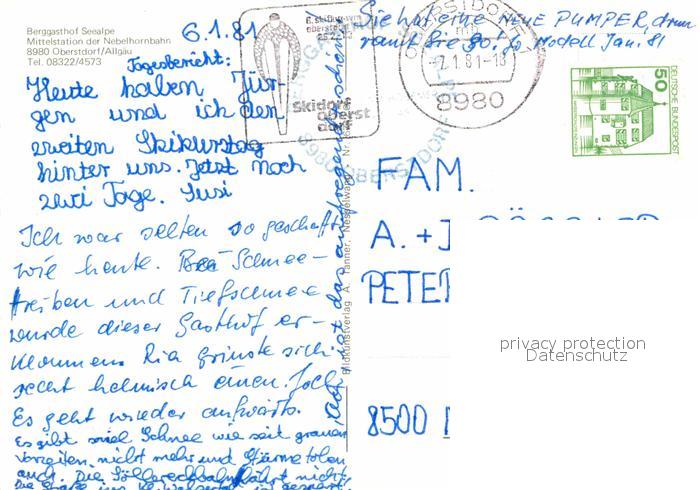 Berggasthof Seealpe
Mittelstation der Nebelhornbahn
8980 Oberstdorf/Allgäu
Tel. 08322/4573
6.1.81
Tagesbericht:
Heute haben Jür-
gen und ich den
zweiten Skikurstag
hinter uns. Jetzt noch
zwei Tage. Susi
Ich war selten so geschafft
wie heute. Bei Schnee-
treiben und Tiefschnee
wurde dieser Gasthof er-
klommen. Ria grinste sich
recht helmisch einen.
Es geht wieder aufwärts.
Es gibt soviel Schnee wie seit grauen
Vorzeiten nicht mehr und Stürme toben
auch. Die Söllereckbahn fährt nicht
Sie hat eine NEUE PUMPER, drum
Modell Jan. 81
Skidorf
Oberst
dorf
-7.1.81-18
8980
8980 OBERSTDORF
50
DEUTSCHE BUNDESPOST
A. Tanner, Nesselwang
FAM.
A. + J
PETER
8500
privacy protection
Datenschutz